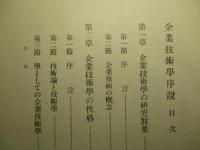 企業技術學序説 目次
第一章 企業技術學の研究對象
第一節 序言
第二節 技術の概念
第二章 企業技術學の性格
第一節 序言
第二節 技術論と技術學
第三節 學としての企業技術學
目次